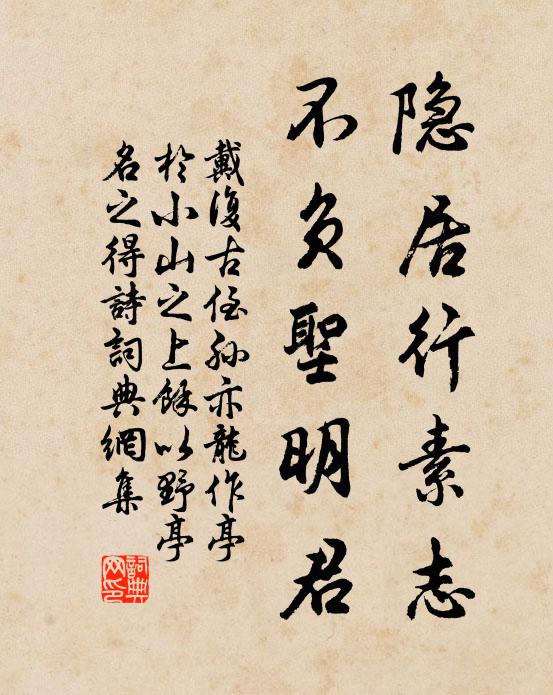 隐居行素志
不负聖明君
戴復古侄孙亦龍作亭
於小山之上馀以野亭
名之得詩詞典網集
詞典网印